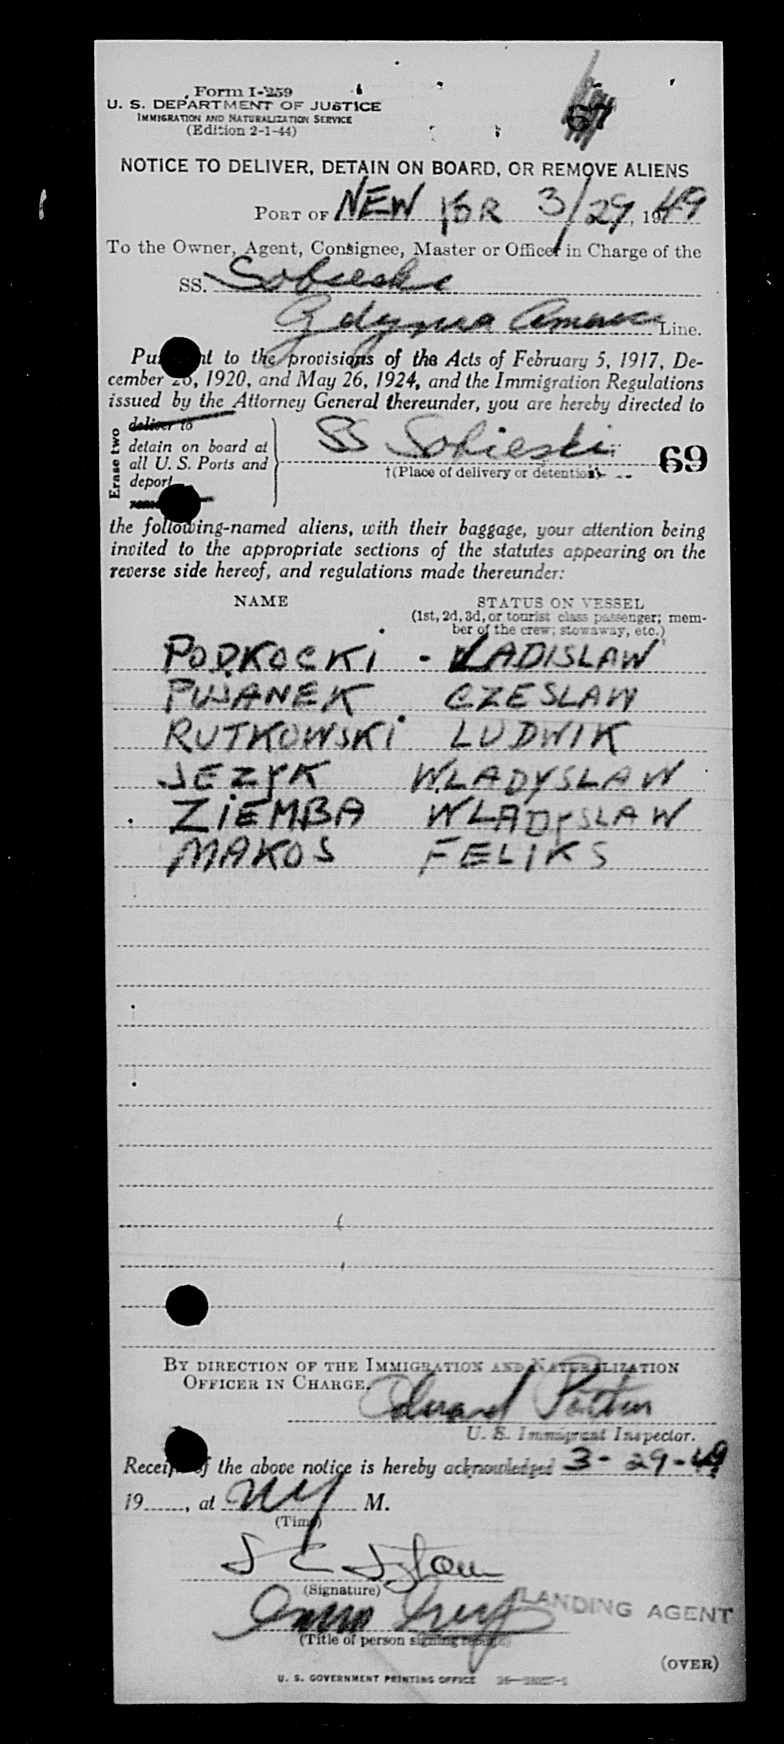 Form I-259
U. S. DEPARTMENT OF JUSTICE
IMMIGRATION AND NATURALIZATION SERVICE
(Edition 2-1-44)
67
NOTICE TO DELIVER, DETAIN ON BOARD, OR REMOVE ALIENS
PORT OF NEW 3/29, 1949
To the Owner, Agent, Consignee, Master or Officer in Charge of the
SS. Sobieski
Gdynia America Line.
Pursuant to the provisions of the Acts of February 5, 1917, De-
cember 26, 1920, and May 26, 1924, and the Immigration Regulations
issued by the Attorney General thereunder, you are hereby directed to
Erase two
deliver to
detain on board at
all U. S. Ports and
deport
SS Sobieski
†(Place of delivery or detention)
69
the following-named aliens, with their baggage, your attention being
invited to the appropriate sections of the statutes appearing on the
reverse side hereof, and regulations made thereunder:
NAME STATUS ON VESSEL
(1st, 2d, 3d, or tourist class passenger; mem-
ber of the crew; stowaway, etc.)
PODKOCKI - WLADISLAW
PUJANEK CZESLAW
RUTKOWSKI LUDWIK
JEZYK WLADYSLAW
ZIEMBA WLADYSLAW
MAKOS FELIKS
BY DIRECTION OF THE IMMIGRATION AND NATURALIZATION
OFFICER IN CHARGE.
Edward
U. S. Immigrant Inspector.
Receipt of the above notice is hereby acknowledged 3-29-49
19____, at NY M.
(Time)
(Signature)
LANDING AGENT
(Title of person signing receipt)
(OVER)
U. S. GOVERNMENT PRINTING OFFICE